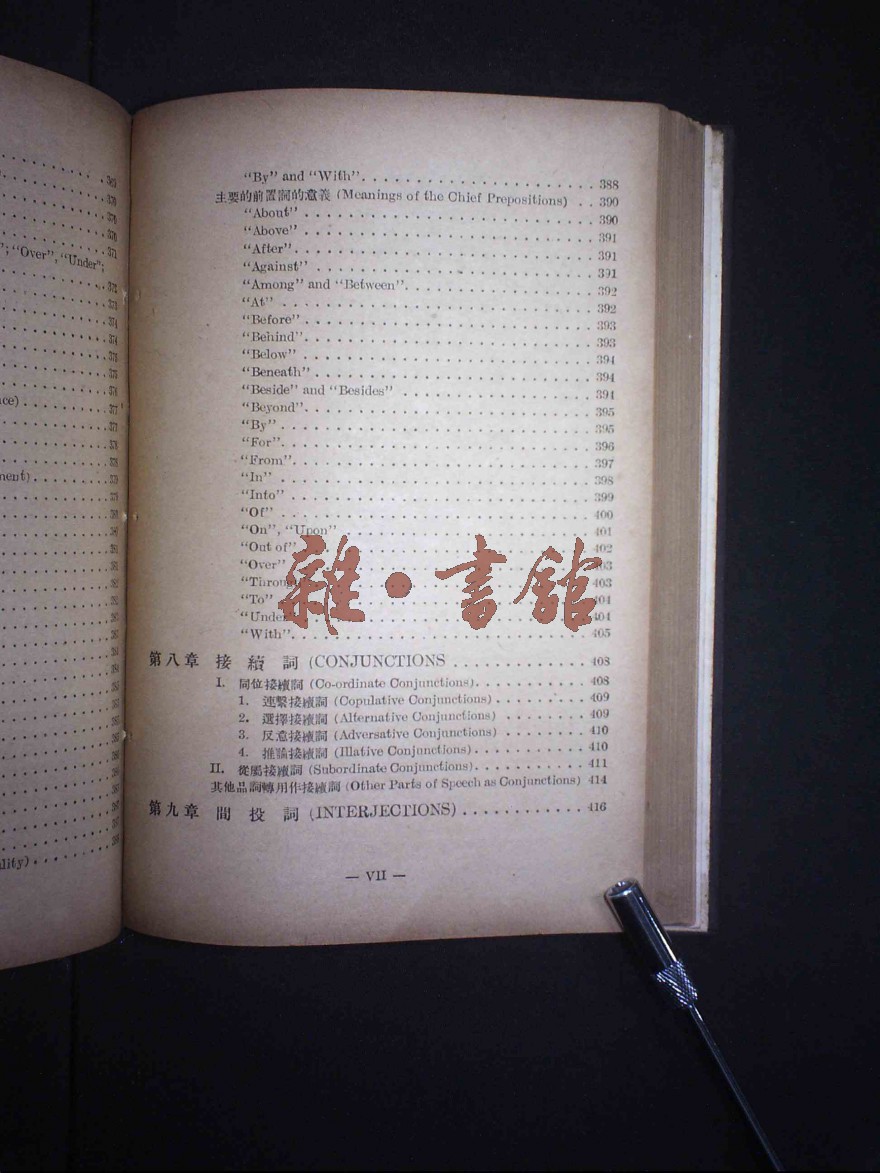 "; "Over", "Under";
ace)
ment)
ality)
"By" and "With" 388
主要的前置詞的意義 (Meanings of the Chief Prepositions) 390
"About" 390
"Above" 391
"After" 391
"Against" 391
"Among" and "Between" 392
"At" 392
"Before" 393
"Behind" 393
"Below" 394
"Beneath" 394
"Beside" and "Besides" 394
"Beyond" 395
"By" 395
"For" 396
"From" 397
"In" 398
"Into" 399
"Of" 400
"On", "Upon" 401
"Out of" 402
"Over" 403
"Through 403
"To" 404
"Under 404
"With" 405
第八章 接續詞 (CONJUNCTIONS 408
I. 同位接續詞 (Co-ordinate Conjunctions) 408
1. 連繫接續詞 (Copulative Conjunctions) 409
2. 選擇接續詞 (Alternative Conjunctions) 409
3. 反意接續詞 (Adversative Conjunctions) 410
4. 推論接續詞 (Illative Conjunctions) 410
II. 從屬接續詞 (Subordinate Conjunctions) 411
其他品詞轉用作接續詞 (Other Parts of Speech as Conjunctions) 414
第九章 間投詞 (INTERJECTIONS) 416
— VII —
雜·書館